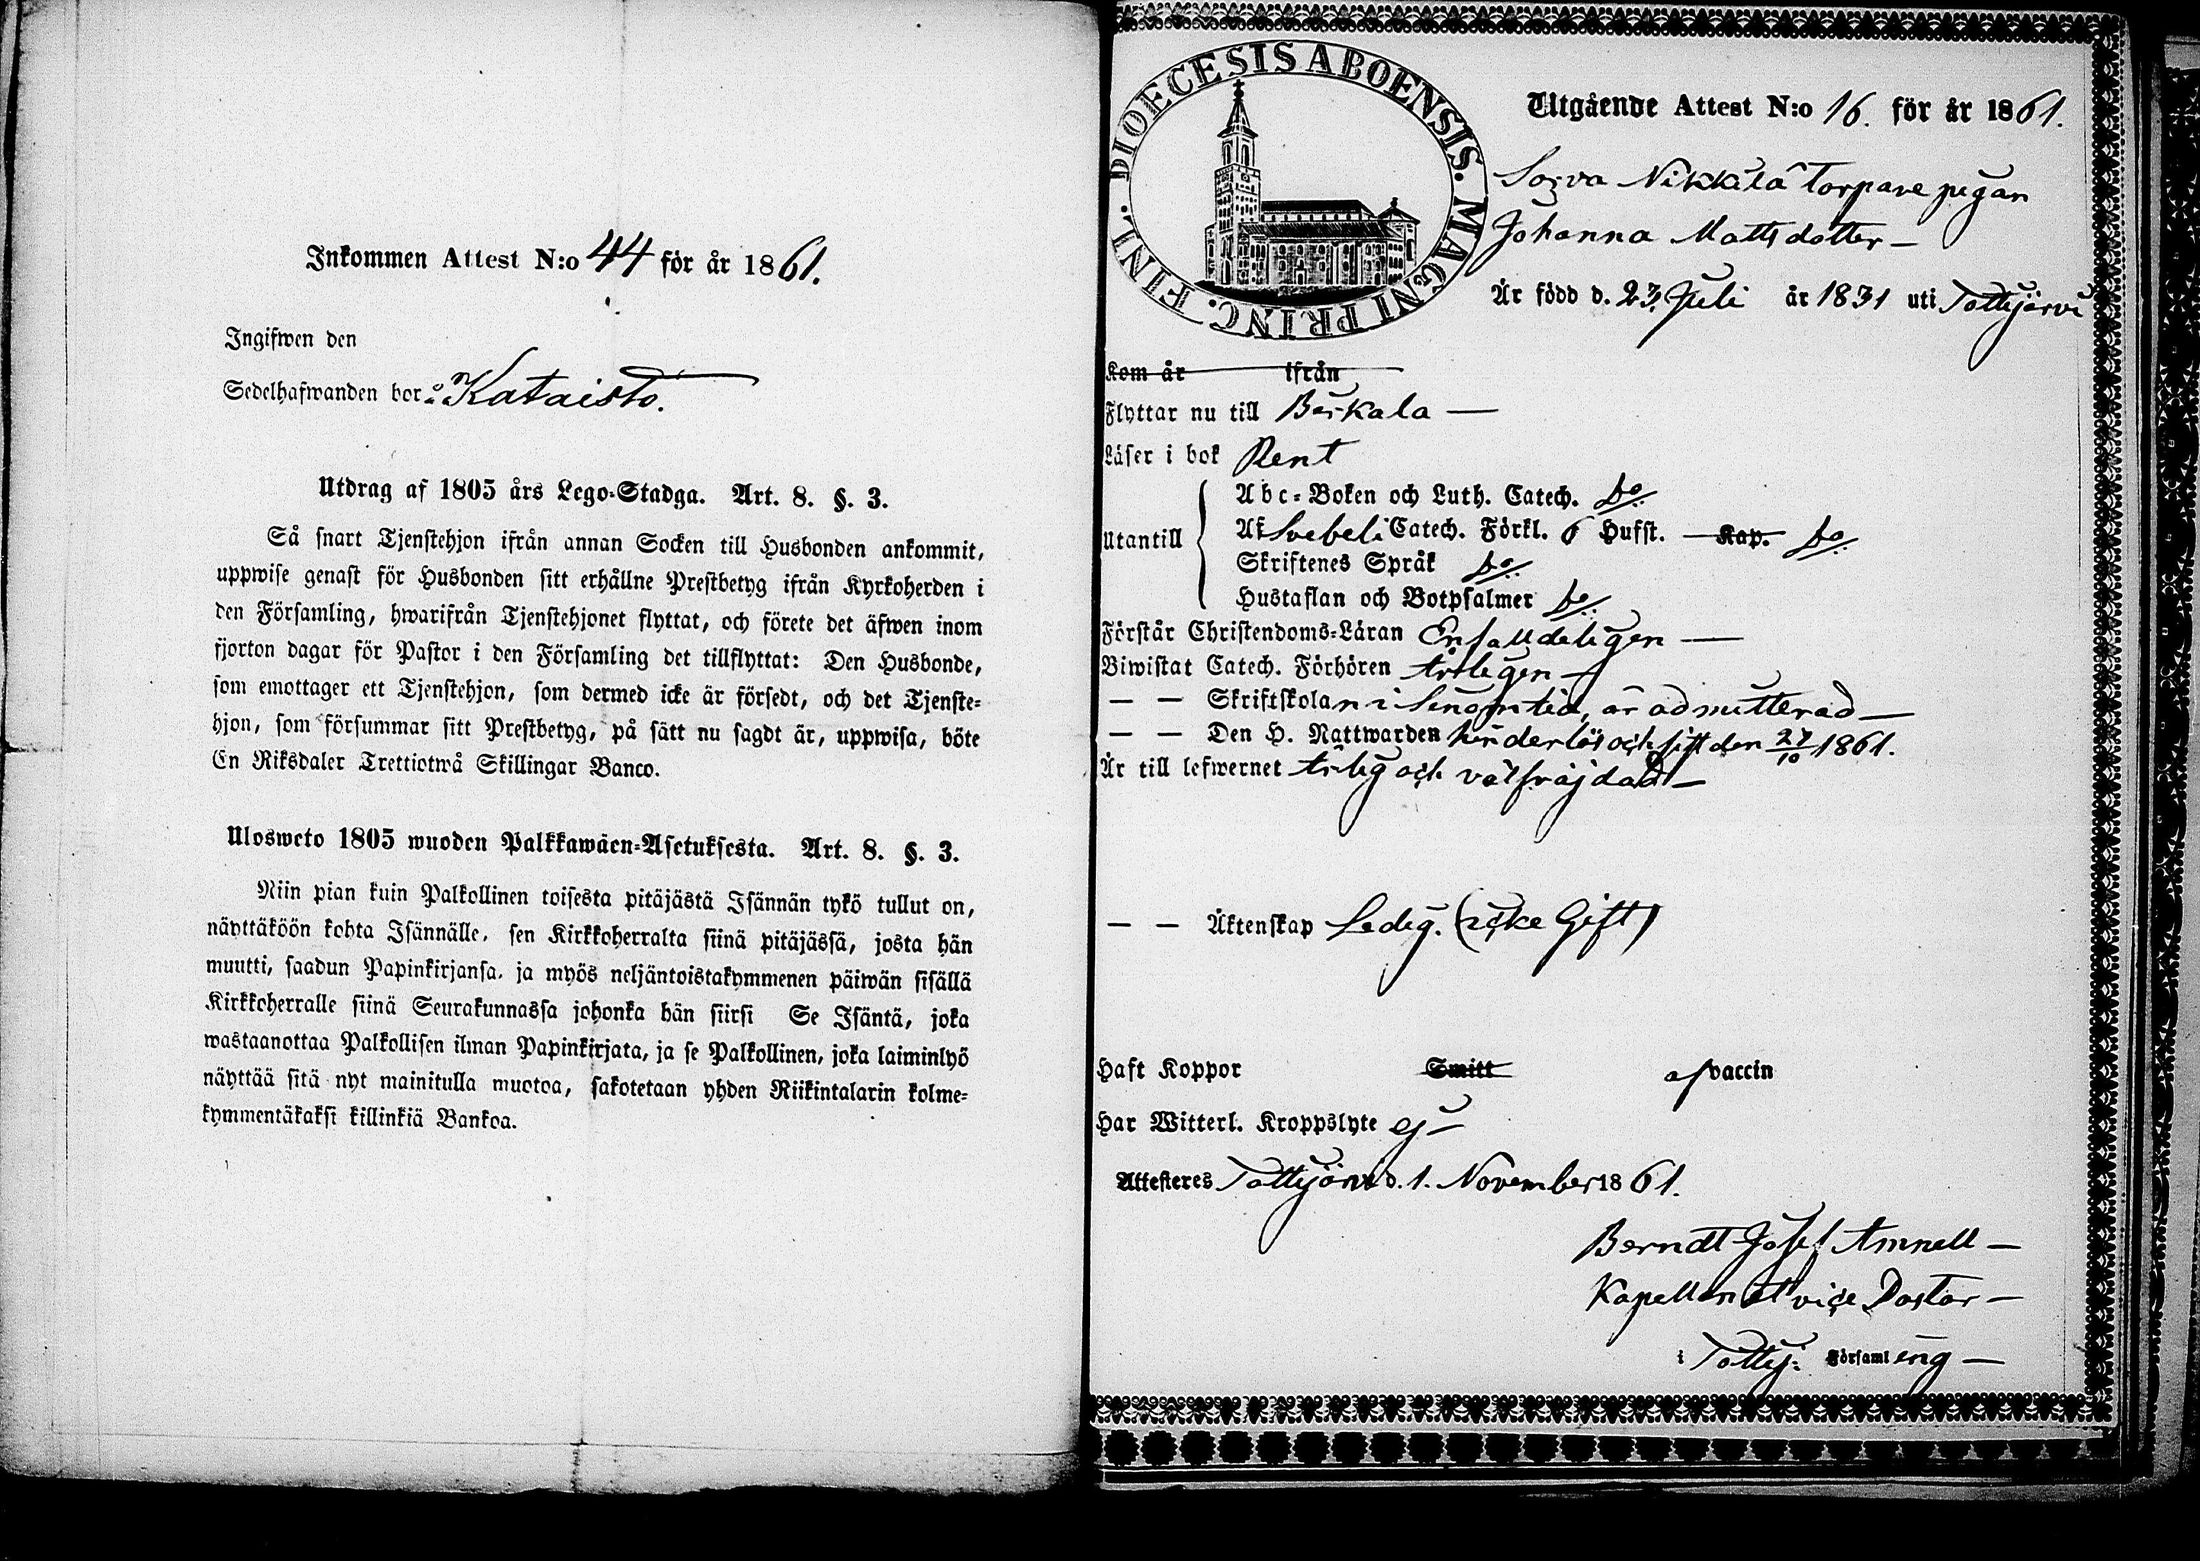 Inkommen Attest N:o 44 för år 1861.
Ingifwen den
Sedelhafwanden bor å Kataisto.
Utdrag af 1805 års Lego-Stadga. Art. 8. §. 3.
Så snart Tjenstehjon ifrån annan Socken till Husbonden ankommit,
uppwise genast för Husbonden sitt erhållne Prestbetyg ifrån Kyrkoherden i
den Församling, hwarifrån Tjenstehjonet flyttat, och förete det äfwen inom
fjorton dagar för Pastor i den Församling det tillflyttat: Den Husbonde,
som emottager ett Tjenstehjon, som dermed icke är försedt, och det Tjenste-
hjon, som försummar sitt Prestbetyg, på sätt nu sagdt är, uppwisa, böte
En Riksdaler Trettiotwå Skillingar Banco.
Ulosweto 1805 wuoden Palkkawäen-Asetuksesta. Art. 8. §. 3.
Niin pian kuin Palkollinen toisesta pitäjästä Isännän tykö tullut on,
näyttäköön kohta Isännälle, sen Kirkkoherralta siinä pitäjässä, josta hän
muutti, saadun Papinkirjansa, ja myös neljäntoistakymmenen päiwän sisällä
Kirkkoherralle siinä Seurakunnassa johonka hän siirsi Se Isäntä, joka
wastaanottaa Palkollisen ilman Papinkirjata, ja se Palkollinen, joka laiminlyö
näyttää sitä nyt mainitulla muotoa, sakotetaan yhden Riikintalarin kolme-
kymmentäkaksi killinkiä Bankoa.
DIOECESIS ABOENSIS. MAGNI PRINC. FINL.
Utgående Attest N:o 16. för år 1861.
Sorva Nikkilä Torpare pigan
Johanna Mattsdotter —
Är född d. 23 Juli år 1831 uti Tottijärvi
Kom år ifrån
Flyttar nu till Birkala —
Läser i bok Rent
Utantill
Abc-Boken och Luth. Catech. do
Af Svebeli Catech. Förkl. 6 Hufst. — Kap. do
Skriftenes Språk do
Hustaflan och Botpsalmer do
Förstår Christendoms-Läran Enfalldeligen —
Biwistat Catech. Förhören årligen —
— — Skriftskolan i sinom tid, är admitterad —
— — Den H. Nattwarden hinderlös och sist den 27/10 1861.
Är till lefwernet ärlig och välfräjdad —
— — Äktenskap Ledig. (icke Gift)
Haft Koppor Smitt af vaccin
Har Witterl. Kroppslyte ej —
Attesteres Tottijärvi d. 1. November 1861.
Berndt Josef Amnell —
Kapellan et vice Pastor —
i Tottij: Församling —